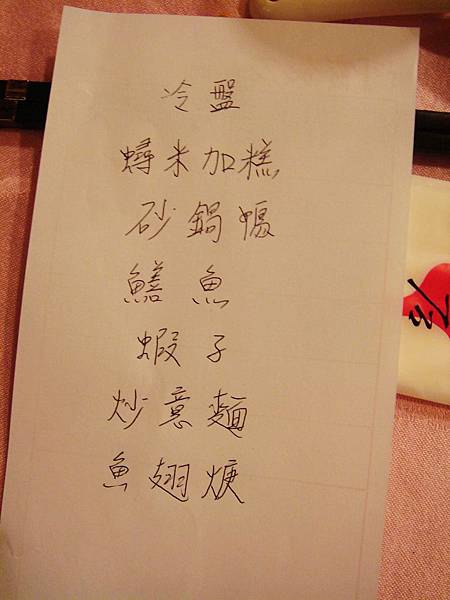 冷盤
蟳米加糕
砂鍋鴨
鱔魚
蝦子
炒意麵
魚翅焿